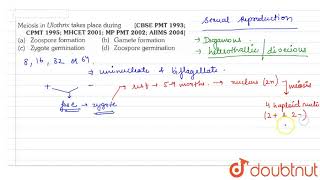 Meiosis in Ulothrix takes place during [CBSE PMT 1993;
CPMT 1995; MHCET 2001; MP PMT 2002; AIIMS 2004]
(a) Zoospore formation (b) Gamete formation
(c) Zygote germination (d) Zoospore germination
Sexual reproduction
→ Isogamous
→ heterothallic / dioecious
8, 16, 32 or 64
→ uninucleate & biflagellate
+ -
fuse → zygote
rest → 5-9 months → nucleus (2n)
meiosis
4 haploid nuclei
(2+ & 2-)
doubtnut